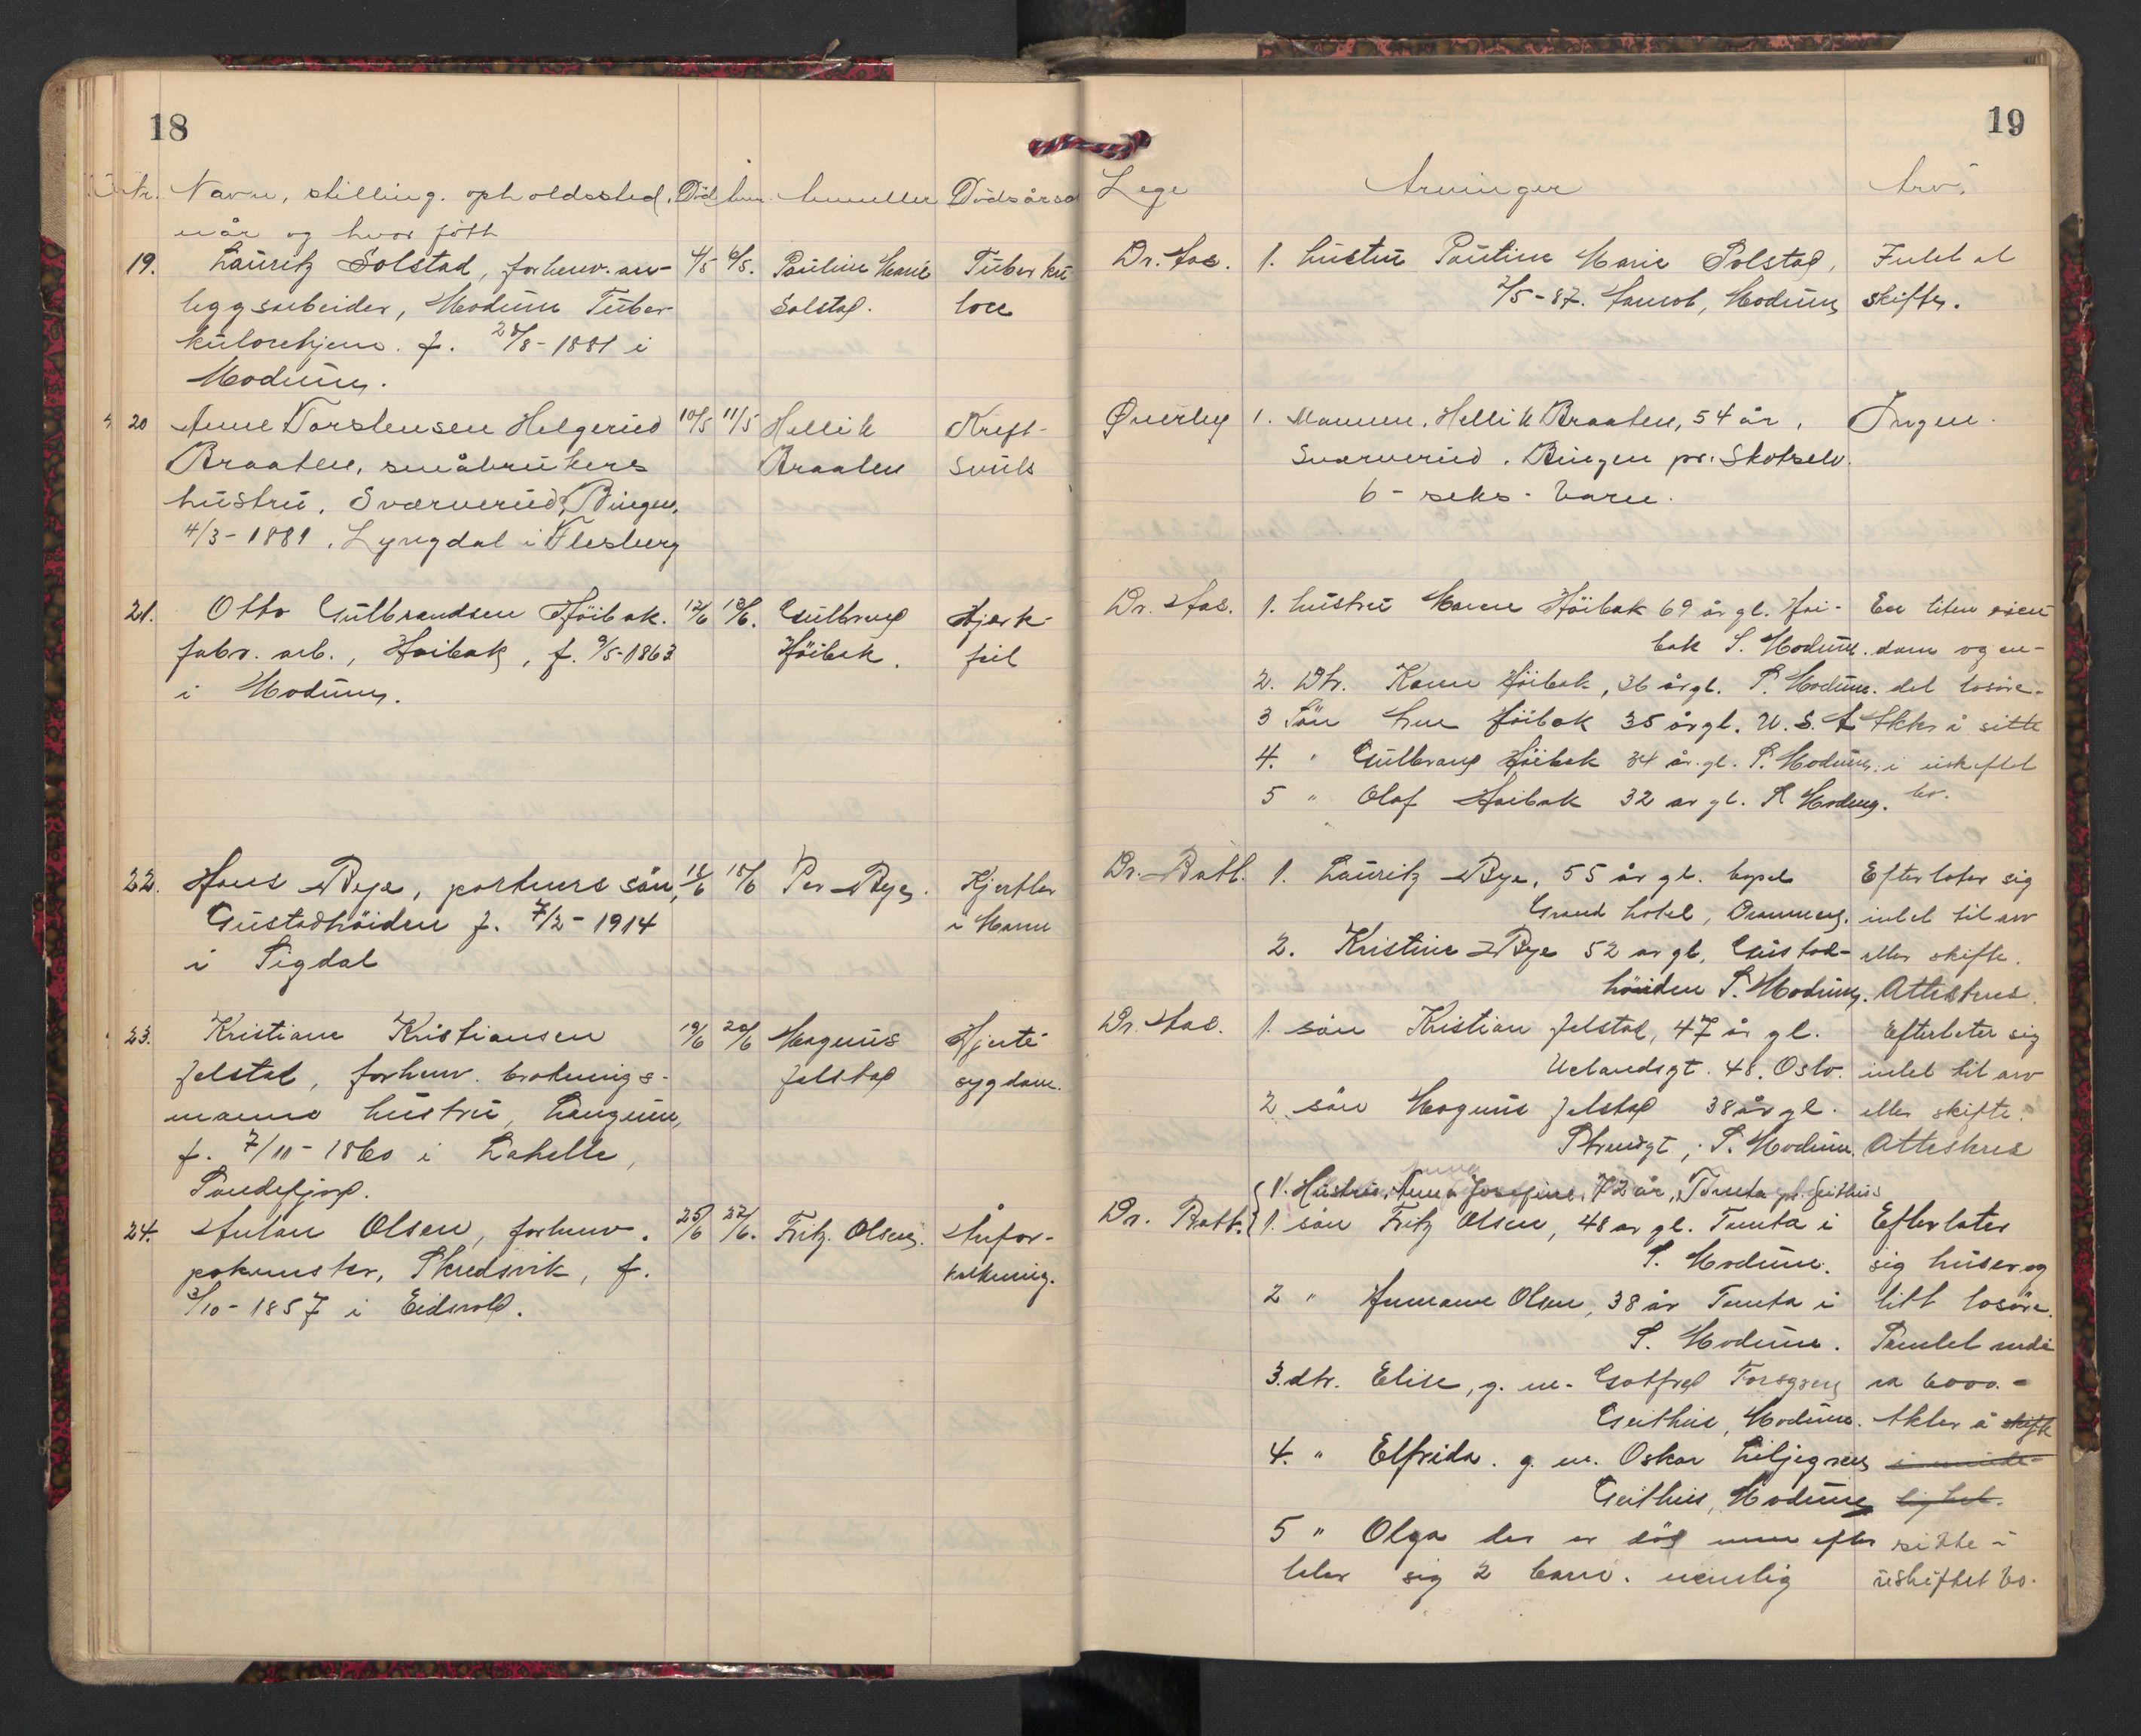 18
Nr. Navn, stilling. opholdssted, Död anm. Anmelder Dödsårsa
når og hvor föth
19. Lauritz Solstad, forhenv. an- 4/5 6/5. Pauline Marie Tuberku
leggsarbeider, Modum Tuber- Solstad. lose
kulosehjem. f. 28/8-1881 i
Modum.
20 Anne Torstensen Helgerud 10/5 11/5 Hellik Kreft-
Braaten, småbrukers Braaten svuls
hustru, Sværverud, Bingen,
4/3-1881. Lyngdal i Flesberg
21. Otto Gulbrandsen Höibak. 12/6 13/6. Gulbrand Hjerte-
fabr. arb., Höibak, f. 9/5-1863 Höibak. feil
i Modum.
22. Hans Bye, portners sön, 18/6 Per Bye. Hjertler
Gustadhöiden f. 7/2-1914
i Sigdal
23. Kristiane Kristiansen 19/6 20/6 Magnus Hjerte
Jelstad, forhenv. Jelstad sygdom.
manns hustru, Langerud,
f. 7/11-1860 i Lahelle,
Sandefjord.
24. Anton Olsen, forhenv. 25/6 Fritz Olsen. Åreforkalkning.
Skredsvik, f.
3/10-1857 i Eidsvold.
19
Lege Arvinger Arv.
Dr. Aas. 1. hustru Pauline Marie Solstad, Intet at
2/5-87. Modum skifte.
Øverby 1. Mannen. Hellik Braaten, 54 år, Ingen.
Sværverud. Bingen pr. Skotselv.
6 - seks - barn.
Dr. Aas. 1. hustru Maren Höibak 69 år gl. Höi- En liten eien
bak S. Modum. dom og en-
2. Dtr. Karen Höibak, 36 år gl. S. Modum. del losöre.
3 Sön Höibak 35 år gl. U. S. A Akter å sitte
4. " Gulbrand Höibak 34 år. gl. S. Modum. i uskiftet
5 " Olaf Höibak 32 år gl. S. Modum. bo.
Dr. Batt. 1. Lauritz Bye, 55 år gl. Efterlater sig
Grand hotel, Drammen. intet til arv
2. Kristine Bye 52 år gl, Gustad- eller skifte.
höiden S. Modum. Attesteres.
Dr. Aas. 1. sön Kristian Jelstad, 47 år gl. Efterlater sig
Uelandsgt. 48. Oslo. intet til arv
2 sön Magnus Jelstad 38 år gl. eller skifte.
Strandgt, S. Modum. Attesteres
1. Hustru, Anna Josefine, 72 år, Tomta pr. Geithus
Dr. Batt. 1. sön Fritz Olsen, 48 år gl. Tomta i Efterlater
S. Modum. sig huser og
2 " Hermann Olsen, 38 år Tomta i litt losöre.
S. Modum. Samlet verdi
3. dtr. Elise, g. m. Gotfred Forsgren ca 6000.-
Geithus, Modum. Akter å skifte
4. " Elfrida. g. m. Oskar Liljegren i minde-
Geithus, Modum lighet.
5 " Olga der er död men efter sitte i
later sig 2 barn. nemlig uskiftet bo.